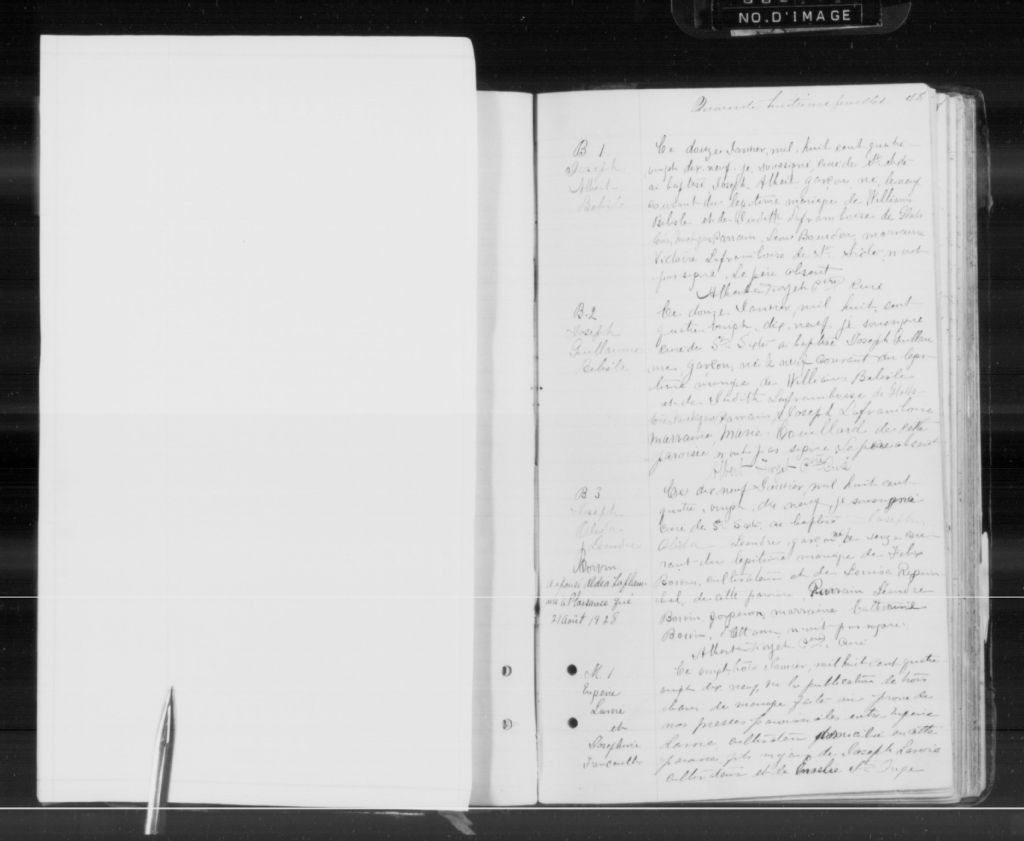 NO. D'IMAGE
Quarante huitième feuillet 48
B 1
Joseph
Albert
Belisle
Ce douze Janvier, mil huit cent quatre-
vingt dix neuf, je, soussigné, curé de St. Sixte
ai baptisé Joseph Albert garçon né, le neuf
courant du légitime mariage de William
Belisle et de Judith Laframboise de
Parrain, Bourdon, marraine
Victoire Laframboise de St. Sixte, n'ont
pas signé. Le père absent
Ptre Curé
B. 2
Joseph
Guillaume
Belisle
Ce douze Janvier, mil huit cent
quatre vingt dix neuf, je soussigné
curé de St. Sixte ai baptisé Joseph Guillau
me, garçon, né le neuf courant du légi-
time mariage de William Belisle
et de Judith Laframboise de
Parrain, Joseph Laframboise
Marraine, Marie de cette
paroisse n'ont pas signé. Le père absent
Ptre Curé
B 3
Joseph
Olida
Leandre
Boivin
a épousé Aldea Laflam-
me à Plaisance Qué
21 Août 1928
Ce dix neuf Janvier, mil huit cent
quatre vingt dix neuf, je soussigné
curé de St. Sixte, ai baptisé Joseph
Olida Leandre, garçon né le seize cou-
rant du légitime mariage de Felix
Boivin, cultivateur et de Louisa
de cette paroisse, Parrain Leandre
Boivin, marraine Catherine
Boivin, d'Ottawa, n'ont pas signé.
Ptre Curé
M. 1
Eugene
Lavoie
et
Josephine
Ce vingt trois Janvier, mil huit cent quatre
vingt dix neuf, vu la publication de trois
bans de mariage faite au prone de
nos messes paroissiales entre Eugène
Lavoie cultivateur domicilié en cette
paroisse fils majeur de Joseph Lavoie
cultivateur et de Emelie St. Onge